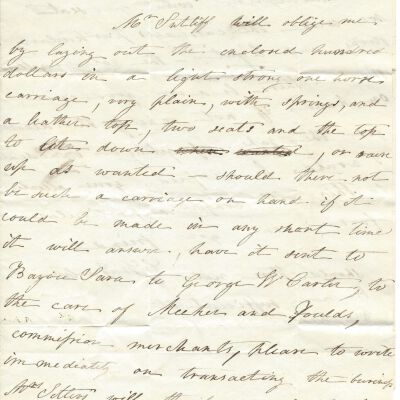 Mr Sutliff will oblige me
by laying out the enclosed hundred
dollars in a light strong one horse
carriage, very plain, with springs, and
a leather top, two seats and the top
to let down when wanted, or raise
up as wanted – should there not
be such a carriage on hand if it
could be made in any short time
it will answer, have it sent to
Bayou Sara to George W Carter, to
the care of Meeker and Foulds,
commission merchants, please to write
immediately on transacting the business
will